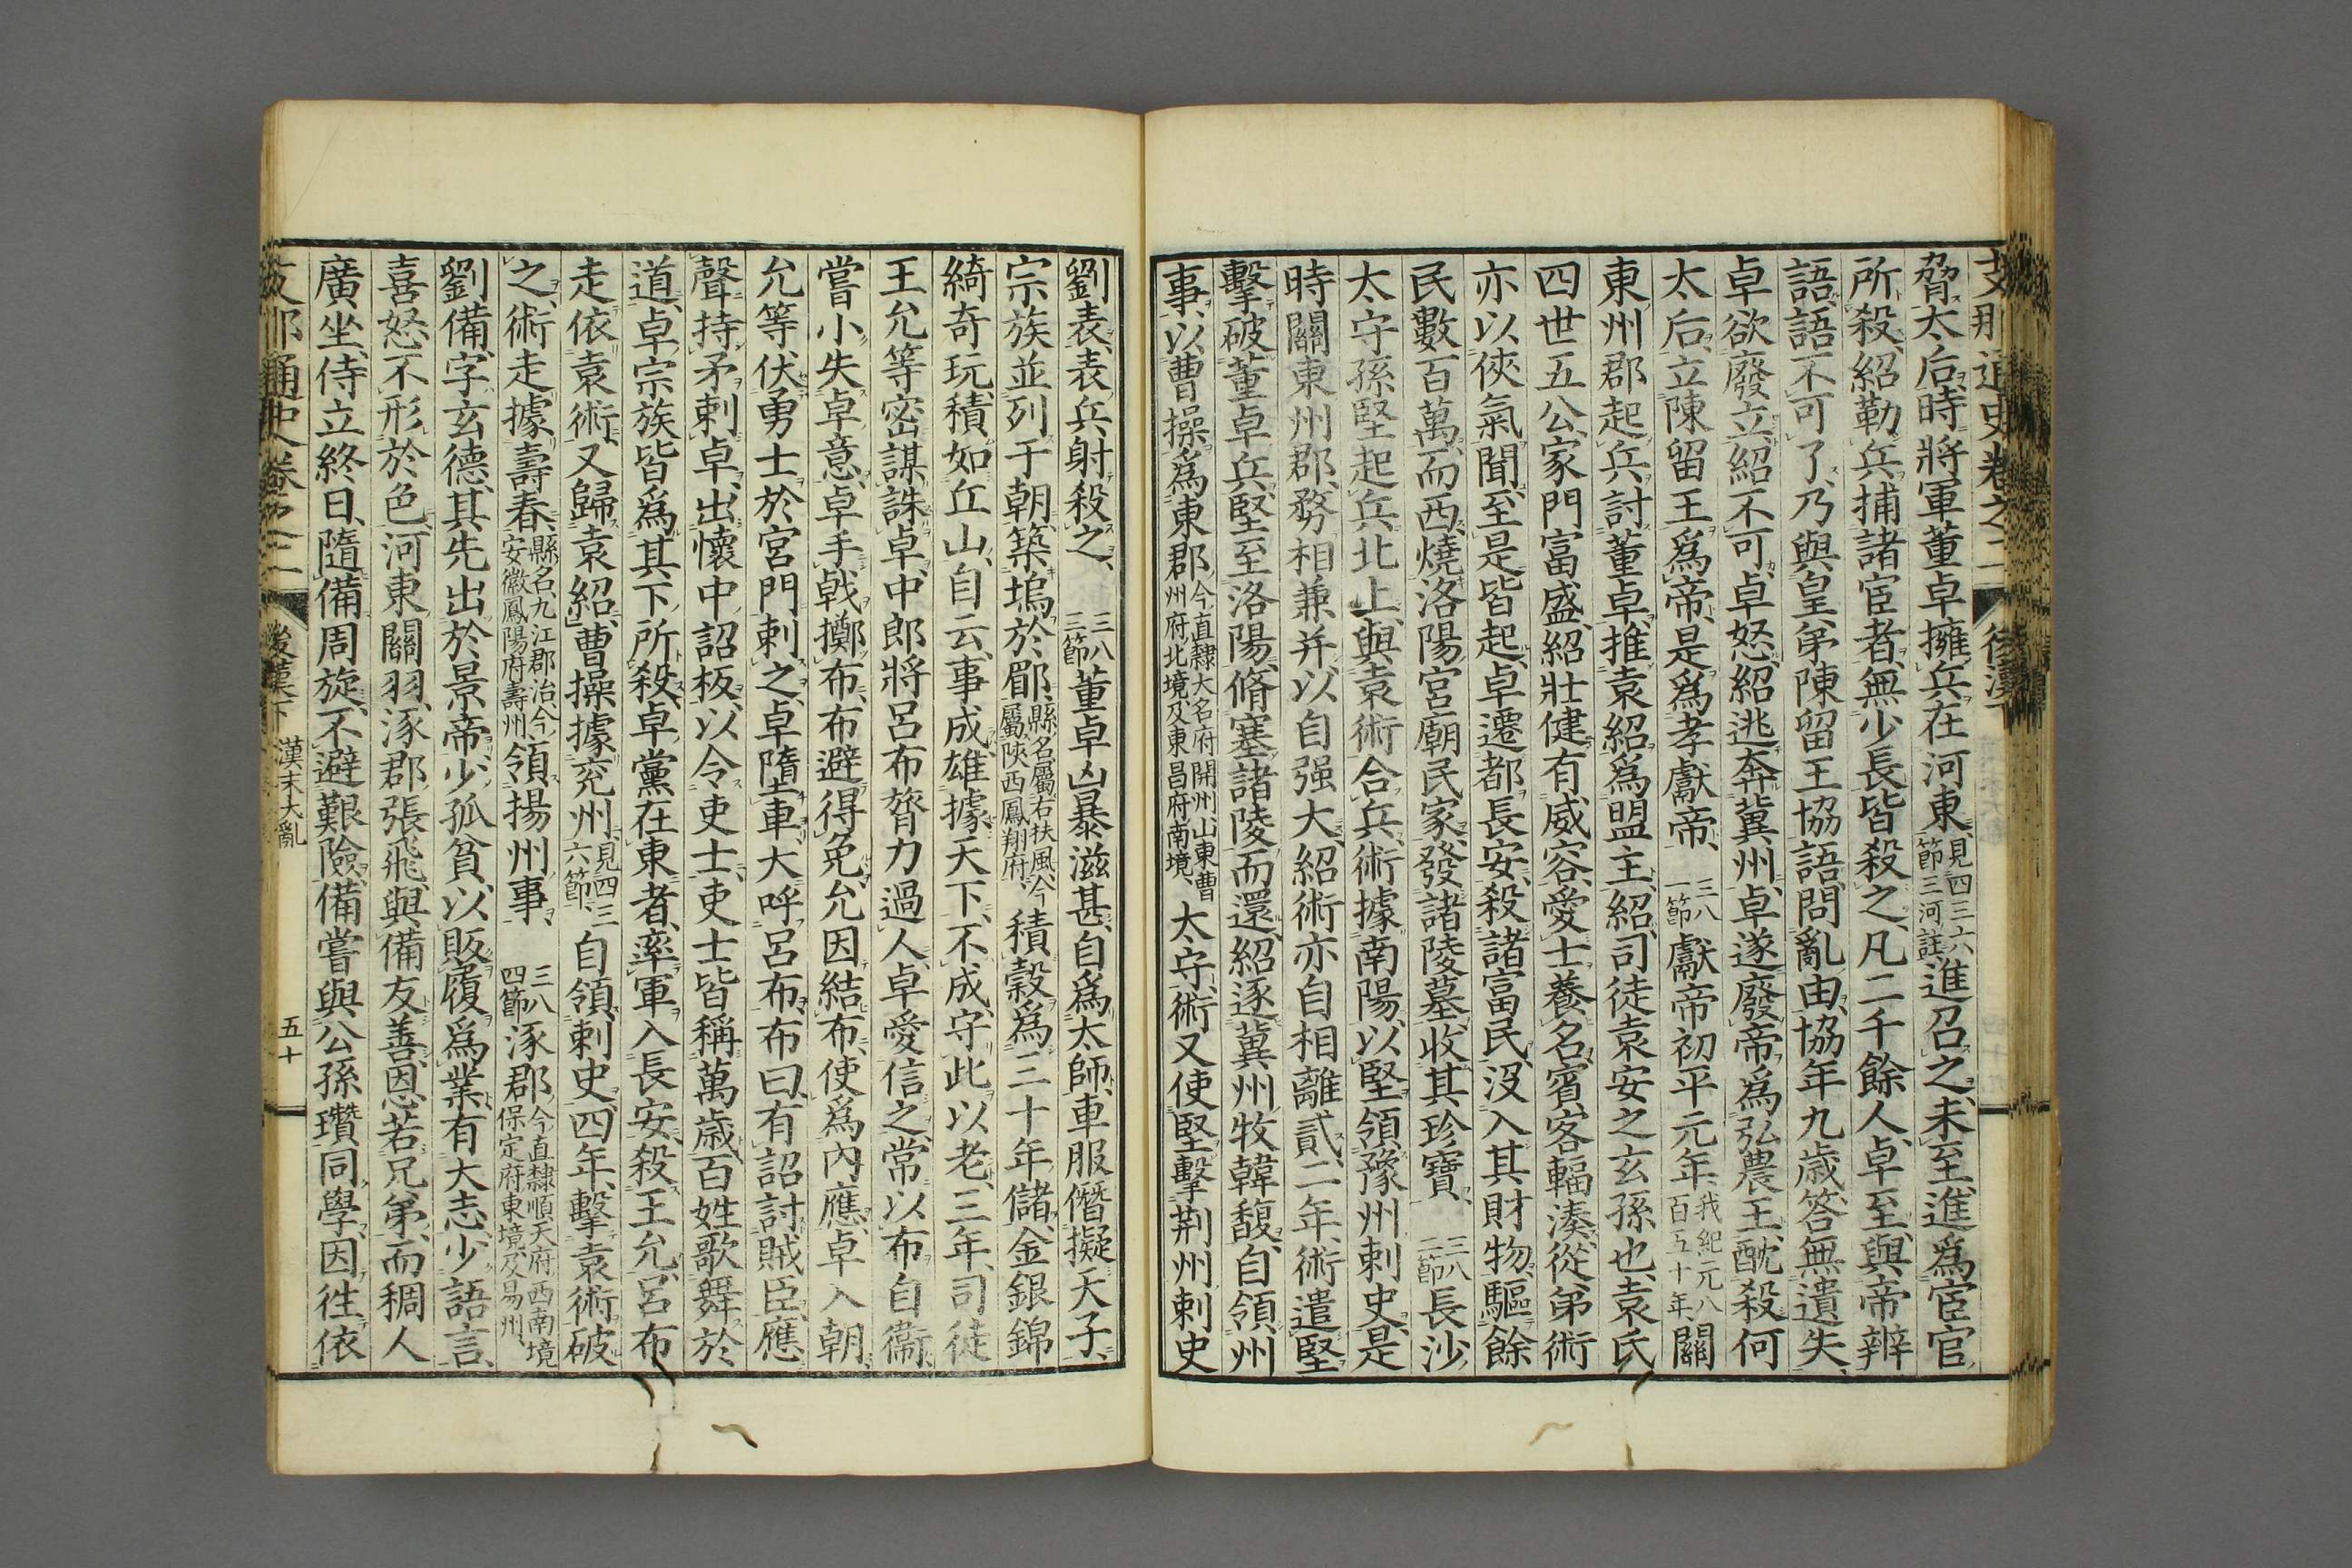 支那通史卷之二 後漢下
脅太后、時將軍董卓擁兵在河東、見四三六節三河註、進召之、未至、進爲宦官
所殺、紹勒兵、捕諸宦者、無少長皆殺之、凡二千餘人、卓至、與帝辨
語、語不可了、乃與皇弟陳留王協語、問亂由、協年九歲、答無遺失、
卓欲廢立、紹不可、卓怒、紹逃奔冀州、卓遂廢帝爲弘農王、酖殺何
太后、立陳留王爲帝、是爲孝獻帝、三八一節獻帝初平元年、我紀元八百五十年、關
東州郡起兵討董卓、推袁紹爲盟主、紹、司徒袁安之玄孫也、袁氏
四世五公、家門富盛、紹壯健有威容、愛士養名、賓客輻湊、從弟術
亦以俠氣聞、至是皆起、卓遷都長安、殺諸富民、沒入其財物、驅餘
民數百萬而西、燒洛陽宮廟民家、發諸陵墓、收其珍寶、三八二節長沙
太守孫堅起兵、北上、與袁術合兵、術據南陽、以堅領豫州刺史、是
時關東州郡、務相兼并以自强大、紹術亦自相離貳、二年、術遣堅
擊破董卓兵、堅至洛陽、脩塞諸陵而還、紹逐冀州牧韓馥、自領州
事、以曹操爲東郡今直隸大名府開州、山東曹州府北境、及東昌府南境、太守、術又使堅擊荆州刺史
劉表、表兵射殺之、三八三節董卓凶暴滋甚、自爲太師、車服僭擬天子、
宗族並列于朝、築塢於郿、縣名、屬右扶風、今屬陝西鳳翔府、積穀爲三十年儲、金銀錦
綺奇玩、積如丘山、自云、事成雄據天下、不成、守此以老、三年、司徒
王允等密謀誅卓、中郎將呂布膂力過人、卓愛信之、常以布自衞、
嘗小失卓意、卓手戟擲布、布避得免、允因結布、使爲內應、卓入朝、
允等伏勇士於宮門刺之、卓墮車、大呼呂布、布曰、有詔討賊臣、應
聲持矛刺卓、出懷中詔板、以令吏士、吏士皆稱萬歲、百姓歌舞於
道、卓宗族皆爲其下所殺、卓黨在東者、率軍入長安、殺王允、呂布
走依袁術、又歸袁紹、曹操據兗州、見四三六節、自領刺史、四年、擊袁術破
之、術走據壽春、縣名、九江郡治、今安徽鳳陽府壽州、領揚州事、三八四節涿郡今直隸順天府西南境、保定府東境、及易州、
劉備、字玄德、其先出於景帝、少孤貧、以販履爲業、有大志、少語言、
喜怒不形於色、河東關羽、涿郡張飛、與備友善、恩若兄弟、而稠人
廣坐、侍立終日、隨備周旋、不避艱險、備嘗與公孫瓚同學、因往依
支那通史卷之二 後漢下 漢末大亂 五十